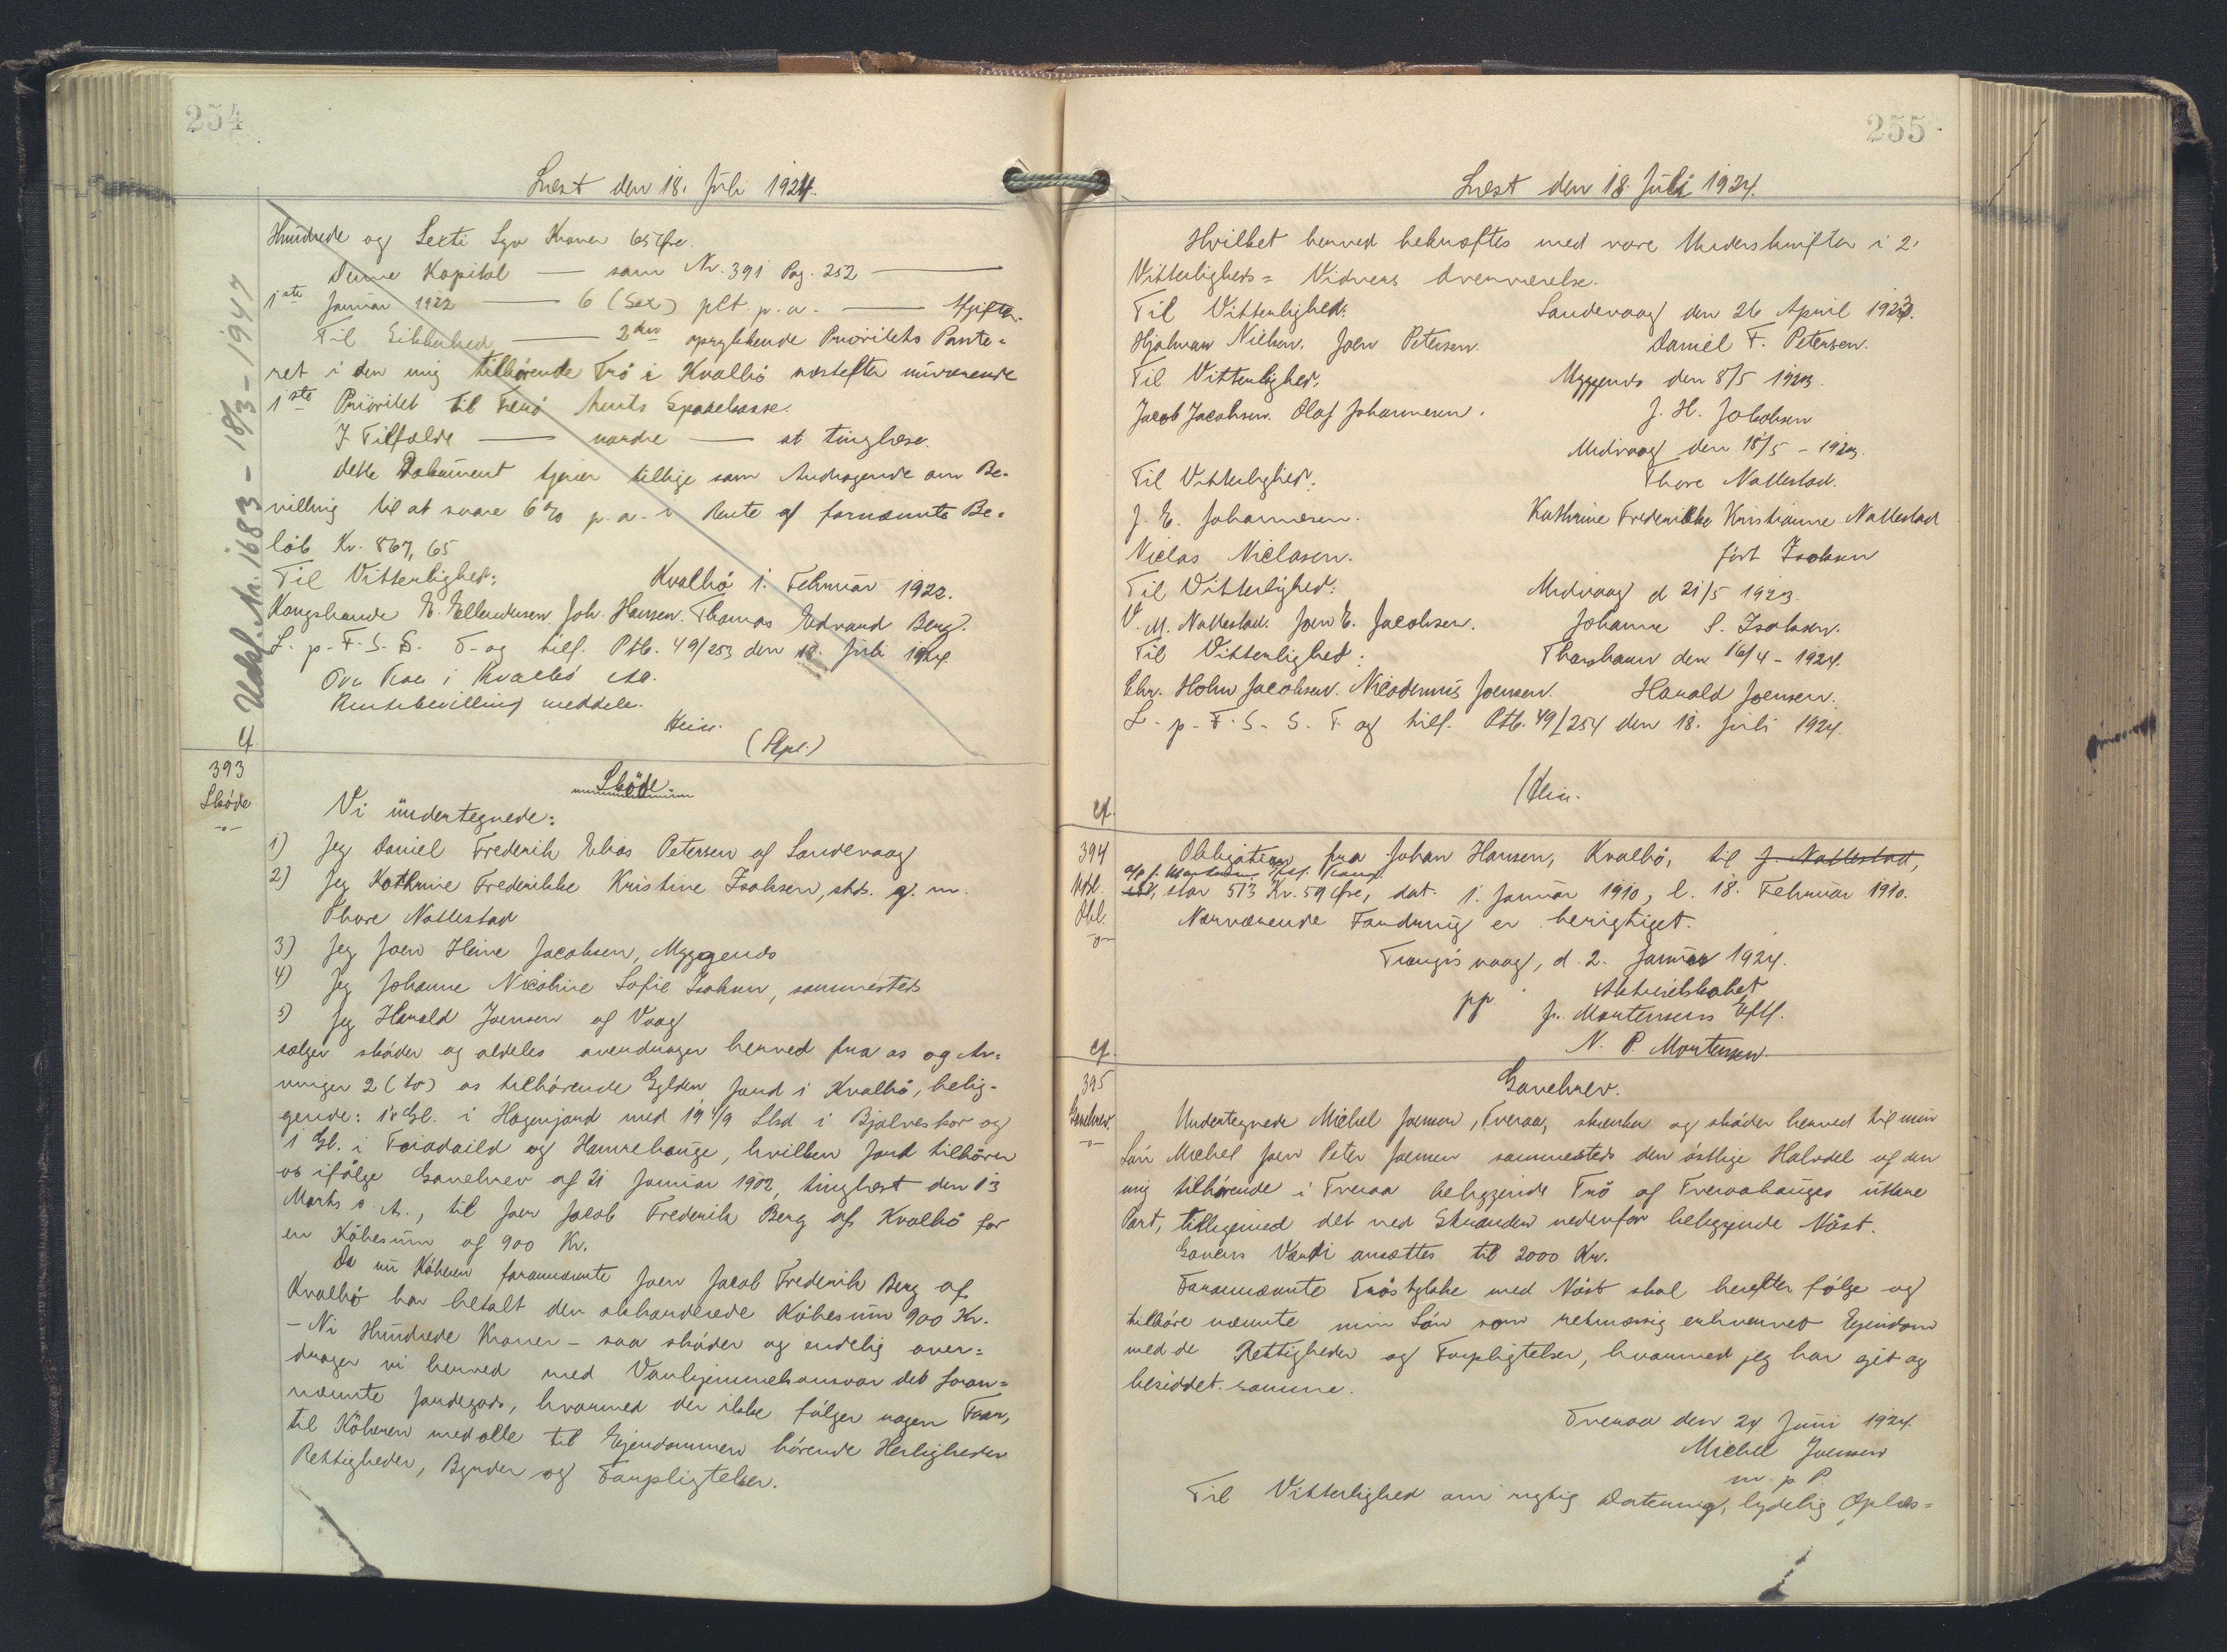 254
Læst den 18. Juli 1924.
Hundrede og Sexti Syv Kroner 65 Øre.
Denne Kapital — som Nr. 391 Pag. 252 —
1ste Januar 1922 — 6 (Sex) pCt. p. a. — Afgifter.
Til Sikkerhed — 2den oprykkende Prioritets Pante-
ret i den mig tilhørende Trö i Kvalbö næstefter nuværende
1ste Prioritet til Færö Amts Sparekasse.
I Tilfælde — værdie — at tinglæse.
Dette Dokument tjener tillige som Andragende om Be-
villing til at svare 6% p. a. i Rente af fornævnte Be-
löb Kr. 867,65
Til Vitterlighed:
Kvalbö 1. Februar 1922.
Kongsbonde E. Ellendersen. Joh. Hansen. Thomas Edvard Berg.
L. p. F. S. S. F. og tilf. Ptb. 49/253 den 18. Juli 1924
Over Trøen i Kvalbö etc.
Rentebevilling meddeles.
Udsl. Nr. 1683 - 18/3 - 1947
cf.
393
Sköde
-o-
Sköde.
Vi undertegnede:
1) Jeg Daniel Frederik Elias Petersen af Sandevaag
2) Jeg Kathrine Frederikke Kristine Isaksen, sted. g. m.
Thore Nattestad
3) Jeg Joen Heine Jacobsen, Myggenæs
4) Jeg Johanne Nicoline Sofie Isaksen, sammesteds
5) Jeg Harald Joensen af Vaag
sælger sköder og aldeles overdrager herved fra os og Ar-
vinger 2 (to) os tilhörende Gylden Jord i Kvalbö, belig-
gende: 1 Gl. i Hagenjord med 19 4/9 Skd i Bjolveskor og
1 Gl. i Toradaild og Hamrehauge, hvilken Jord tilhörer
os ifölge Gavebrev af 21 Januar 1902, tinglæst den 13
Marts s. A., til Joen Jacob Frederik Berg af Kvalbö for
en Köbesum af 900 Kr.
Da nu Köberen forannævnte Joen Jacob Frederik Berg af
Kvalbö har betalt den akkorderede Köbesum 900 Kr.
- Ni Hundrede Kroner - saa sköder og endelig over-
drager vi herved med Vanhjemmelsansvar det foran-
nævnte Jordegods, hvormed der ikke fölger nogen Faar,
til Köberen med alle til Ejendommen hörende Herligheder
Rettigheder, Byrder og Forpligtelser.
255
Læst den 18. Juli 1924.
Hvilket herved bekræftes med vore Underskrifter i 2.
Vitterligheds- Vidners Overværelse.
Til Vitterlighed:
Sandevaag den 26 April 1923.
Hjalmar Nielsen. Joen Petersen.
Daniel F. Petersen.
Til Vitterlighed:
Myggenæs den 8/5 1923.
Jacob Jacobsen. Olaf Johannesen.
J. H. Jacobsen
Midvaag den 18/5 - 1923.
Til Vitterlighed:
Thore Nattestad.
J. E. Johannesen.
Kathrine Frederikke Kristianne Nattestad
Niclas Niclasen.
födt Isaksen
Til Vitterlighed:
Midvaag d 21/5 1923.
V. M. Nattestad. Joen E. Jacobsen.
Johanne S. Isaksen.
Til Vitterlighed:
Thorshavn den 16/4 - 1924.
Chr. Holm Jacobsen. Nicodemus Joensen.
Harald Joensen.
L. p. F. S. S. F. og tilf. Ptb. 49/254 den 18. Juli 1924.
cf.
394
Obl.
-o-
Obligation fra Johan Hansen, Kvalbö, til J. Nattestad,
stor 513 Kr. 59 Øre, dat. 1. Januar 1910, l. 18. Februar 1910.
Nærværende Fordring er berigtiget.
Trangisvaag, d. 2. Januar 1924.
pp. Aktieselskabet
J. Mortensens Eftf.
N. P. Mortensen.
cf.
395
Gavebrev.
-o-
Gavebrev.
Undertegnede Michel Joensen, Tveraa, skænker og sköder herved til min
Sön Michel Joen Peter Joensen sammesteds den östlige Halvdel af den
mig tilhörende i Tveraa beliggende Trö af Tveraahauges uttare
Part, tilligemed det ved Stranden nedenfor beliggende Nöst.
Gavens Værdi ansættes til 2000 Kr.
Forannævnte Tröstykke med Nöst skal herefter fölge og
tilhöre nævnte min Sön som retmæssig erhvervet Ejendom
med de Rettigheder og Forpligtelser, hvormed jeg har ejet og
besiddet samme.
Tveraa den 24 Juni 1924.
Michel Joensen
m. p. P.
Til Vitterlighed om rigtig Datering, lydelig Oplæs-